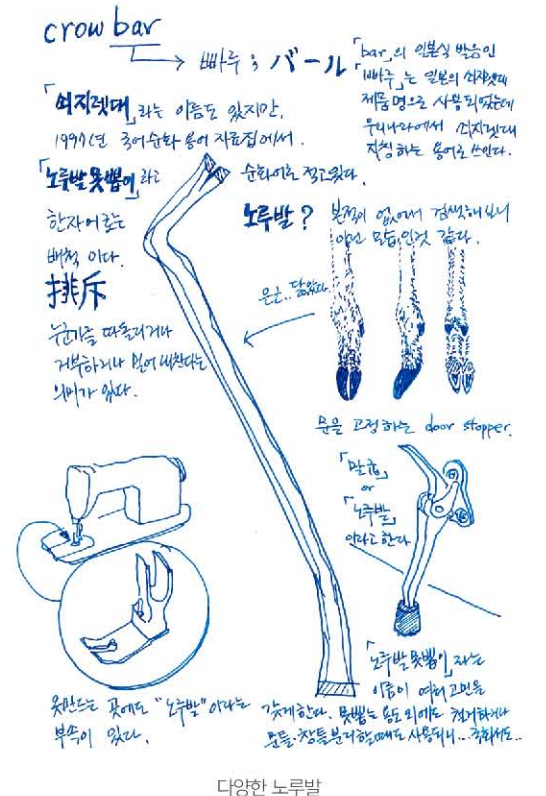 crow bar
빠루 ; バール
「bar」의 일본식 발음인
「빠루」는 일본의 쇠지렛대
제품명으로 사용되었는데
우리나라에서 쇠지렛대
지칭하는 용어로 쓰인다.
「쇠지렛대」라는 이름도 있지만,
1997년 국어순화 용어 자료집에서.
「노루발못뽑이」라고
순화어로 적고있다.
한자어로는
배척 이다.
排斥
누군가를 따돌리거나
거부하거나 밀어 내친다는
의미가 있다.
노루발? 본적이 없어서 검색해보니
이런 모습인것 같다.
은근.. 닮았다.
문을 고정하는 door stopper.
「말굽」
or
「노루발」
이라고한다
옷만드는 곳에도 "노루발"이라는
부속이 있다.
「노루발못뽑이」라는
이름이 여러고민을
갖게한다. 못뽑는 용도 외에도 철거하거나
문틀·창틀분리할때도 사용되니...
다양한 노루발